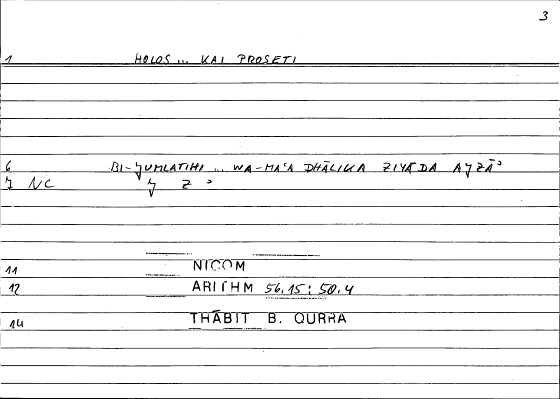 3
1 HOLOS ... KAI PROSETI
6 BI-JUMLATIHI ... WA-MA'A DHĀLIKA ZIYĀDA AJZĀ'
J NC J Z '
11 NICOM
12 ARITHM 56.15 : 50.4
14 THĀBIT B. QURRA